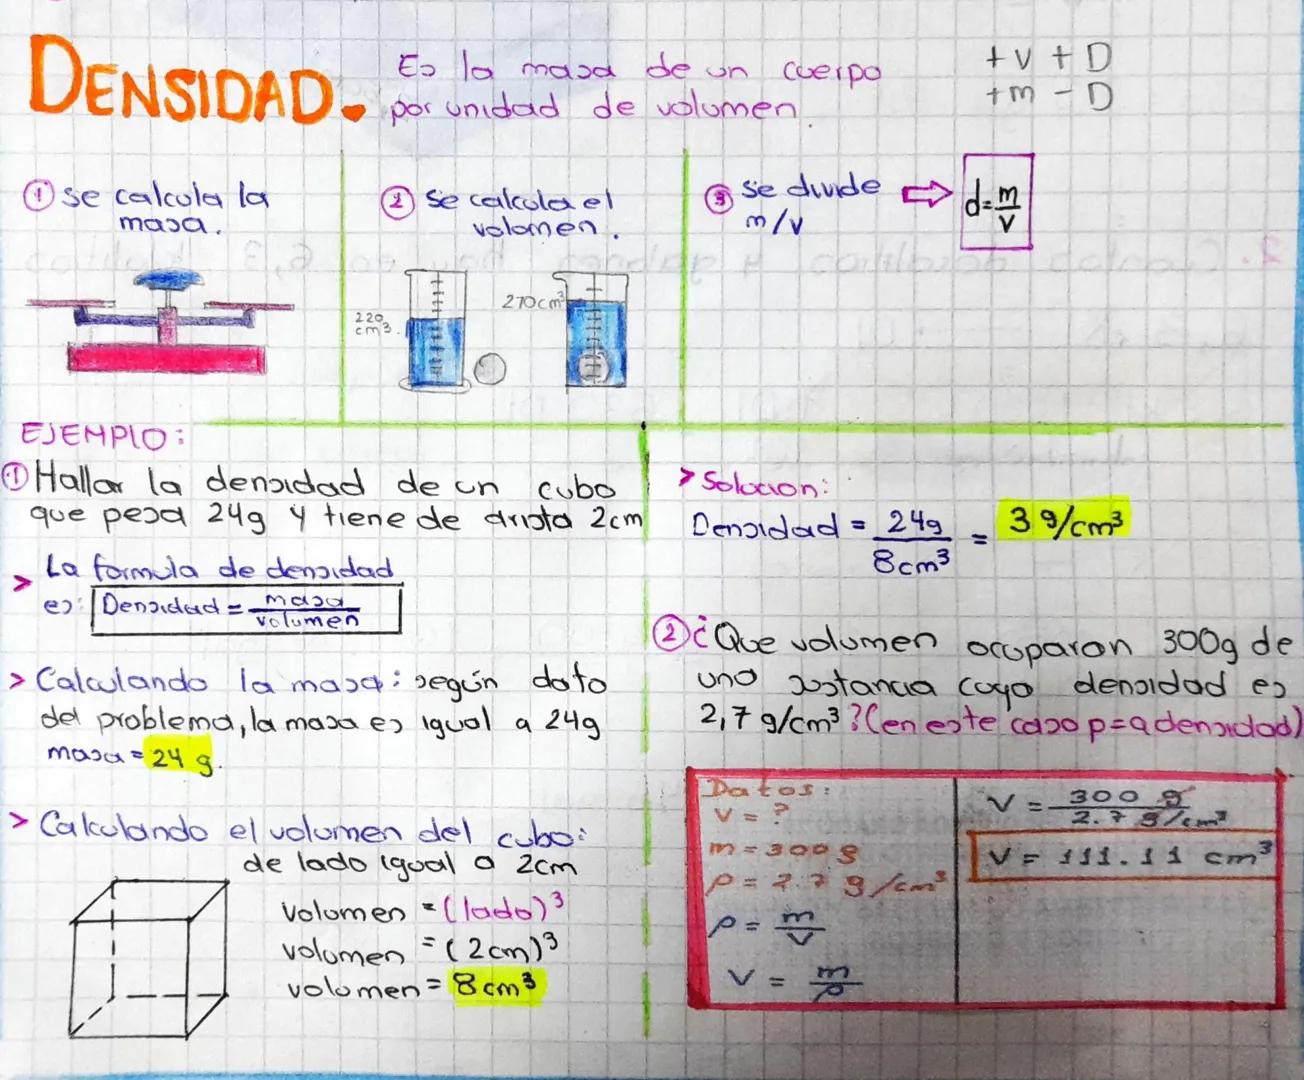 DENSIDAD.
Es la masa de un cuerpo
por unidad de volumen.
+ v + D
+ m - D
1 se calcula la
masa.
2 se calcula el
volumen.
3 se divide
m/v
d=m/v
220
cm3.
270cm3
EJEMPLO:
1 Hallar la densidad de un cubo
que pesa 24g y tiene de arista 2cm
> La formula de densidad
es: Densidad = masa/volumen
> Calculando la masa: según dato
del problema, la masa es igual a 24g
masa = 24 g.
> Calculando el volumen del cubo:
de lado igual a 2cm
volumen = (lado)³
volumen = (2cm)³
volumen = 8cm³
> Solucion:
Densidad = 24g/8cm³ = 3 g/cm³
2 ¿Que volumen ocuparan 300g de
una sustancia cuya densidad es
2,7 g/cm³? (en este caso p=a densidad)
Datos:
V = ?
m = 300g
ρ = 2.7 g/cm³
ρ = m/V
V = m/ρ
V = 300 g/2.7 g/cm³
V = 111.11 cm³